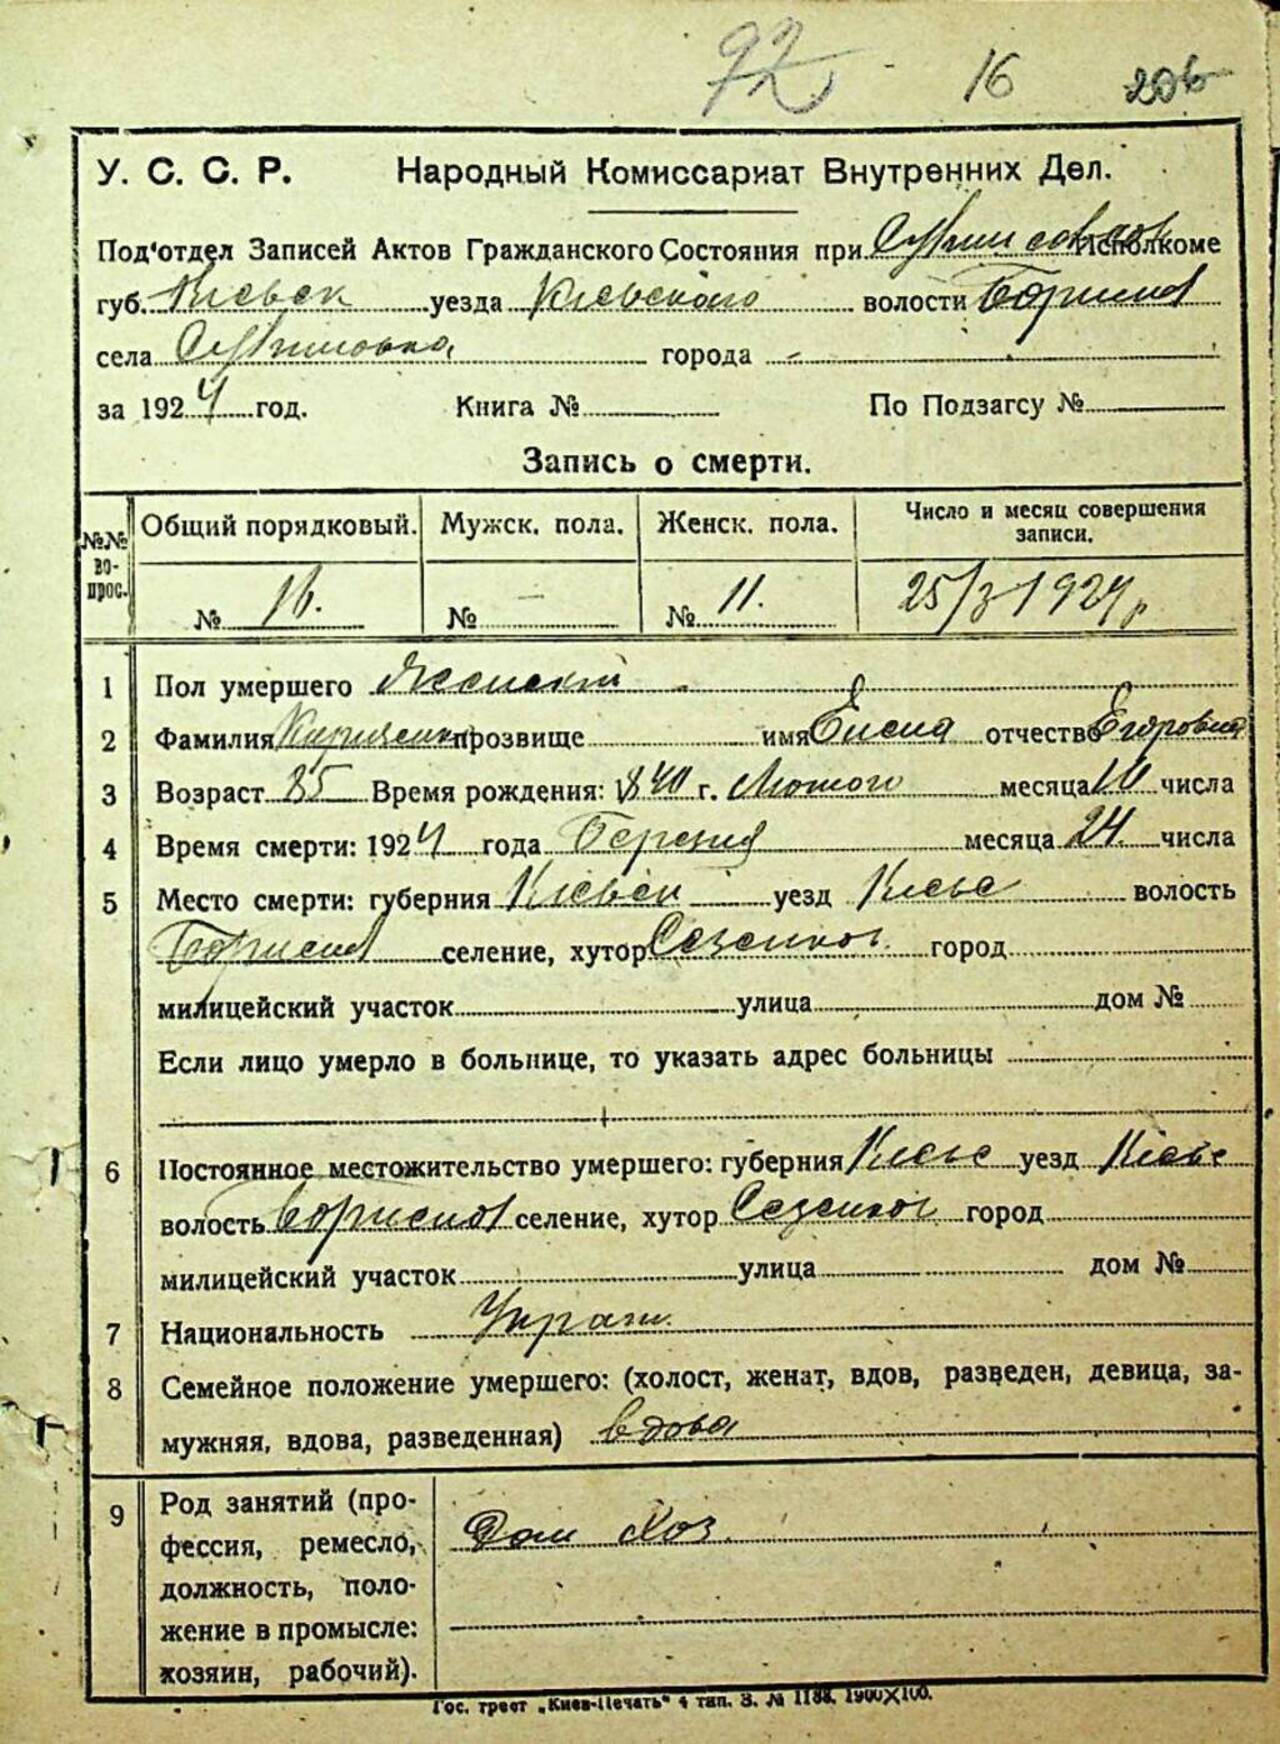 92 16 206
У. С. С. Р. Народный Комиссариат Внутренних Дел.
Под'отдел Записей Актов Гражданского Состояния при Исполкоме
губ. Киевск уезда Киевского волости Борисп
села города -
за 1924 год. Книга № По Подзагсу №
Запись о смерти.
№№ вопрос. Общий порядковый. Мужск. пола. Женск. пола. Число и месяц совершения записи.
№ 16. № — № 11. 25/3 1924 р
1 Пол умершего Женский
2 Фамилия Кириченко прозвище имя Елена отчество Егоровна
3 Возраст 85 Время рождения: 1840 г. Лютого месяца 10 числа
4 Время смерти: 1924 года Березня месяца 24. числа
5 Место смерти: губерния Киевск уезд Киевс волость
селение, хутор Сезенков город
милицейский участок улица дом №
Если лицо умерло в больнице, то указать адрес больницы
6 Постоянное местожительство умершего: губерния Киевс уезд Киевс
волость селение, хутор Сезенков город
милицейский участок улица дом №
7 Национальность Украин.
8 Семейное положение умершего: (холост, женат, вдов, разведен, девица, за-
мужняя, вдова, разведенная) вдова
9 Род занятий (про-
фессия, ремесло, Дом Хоз.
должность, поло-
жение в промысле:
хозяин, рабочий).
Гос. трест „Киев-Печать“ 4 тип. З. № 1188. 1900×100.